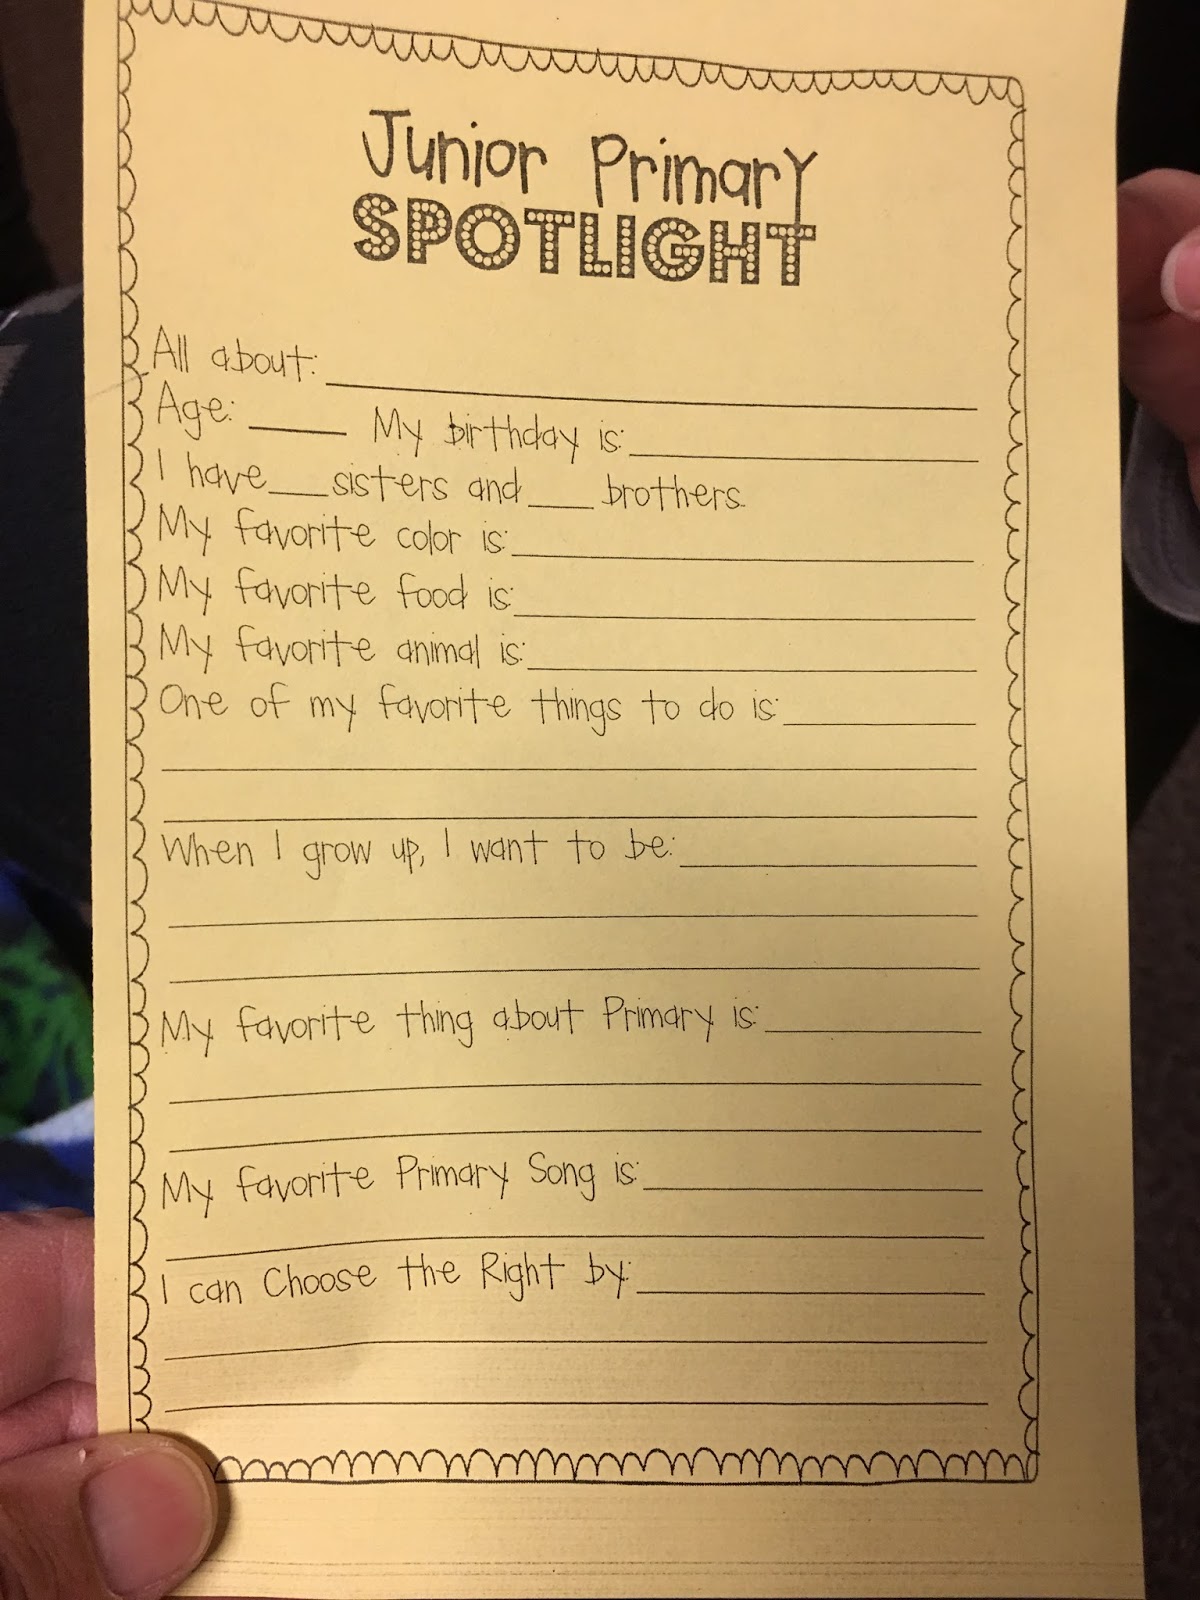 Junior Primary
SPOTLIGHT
All about:
Age: My birthday is:
I have sisters and brothers.
My favorite color is:
My favorite food is:
My favorite animal is:
One of my favorite things to do is:
When I grow up, I want to be:
My favorite thing about Primary is:
My favorite Primary Song is:
I can Choose the Right by: